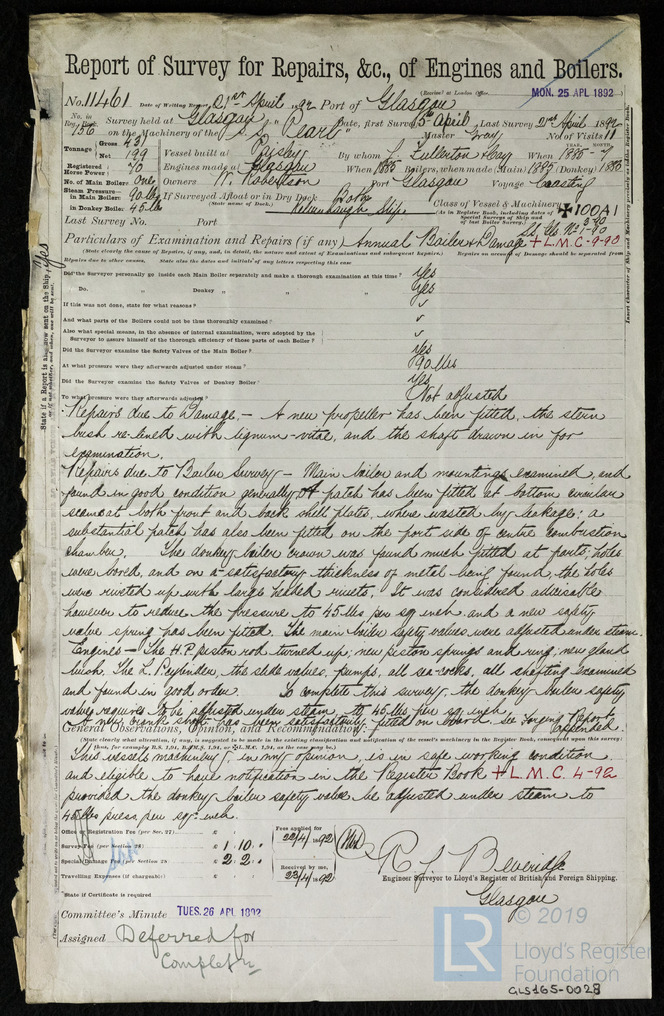 Report of Survey for Repairs, &c., of Engines and Boilers.
(Received at London Office.) MON. 25 APL 1892
No. 11461 Date of Writing Report 21st April 92 Port of Glasgow
No. in Reg. Book 156 Survey held at Glasgow Date, first Survey 5th April Last Survey 21st April 1892
on the Machinery of the S.S. "Pearl" Master Gray No. of Visits 11
Tonnage Gross 431 Net 199 Vessel built at Paisley By whom J. Fullerton & Coy When 1885-7
Registered Horse Power 70 Engines made at Glasgow When 1885 Boilers, when made (Main) 1885 (Donkey) 1885
No. of Main Boiler: one Owners W. Robertson Port Glasgow Voyage Coasting
Steam Pressure in Main Boiler: 90 lbs If Surveyed Afloat or in Dry Dock Both
in Donkey Boiler 45 lbs (State name of Dock.) Kelvinhaugh Slip Class of Vessel & Machinery ✠100A1
Last Survey No. Port
Particulars of Examination and Repairs (if any) Annual Boilers & Damage + L.M.C. 9-90
Did the Surveyor personally go inside each Main Boiler separately and make a thorough examination at this time? Yes
Do. " Donkey " " " " Yes
If this was not done, state for what reasons? ✓
And what parts of the Boilers could not be thus thoroughly examined? ✓
Also what special means, in the absence of internal examination, were adopted by the
Surveyor to assure himself of the thorough efficiency of those parts of each Boiler? ✓
Did the Surveyor examine the Safety Valves of the Main Boiler? Yes
At what pressure were they afterwards adjusted under steam? 90 lbs
Did the Surveyor examine the Safety Valves of Donkey Boiler? Yes
To what pressure were they afterwards adjusted? Not adjusted
Repairs due to Damage. - A new propeller has been fitted, the stern
bush re-lined with lignum-vitae, and the shaft drawn in for
examination.
Repairs due to Boiler Survey - Main boiler and mountings examined, and
found in good condition generally. A patch has been fitted at bottom circular
seams at both front and back shell plates, where wasted by leakage; a
substantial patch has also been fitted on the port side of centre combustion
chamber. The donkey boiler crown was found much pitted at parts; holes
were bored, and on a satisfactory thickness of metal being found, the holes
were riveted up with large headed rivets. It was considered advisable
however to reduce the pressure to 45 lbs per sq inch. and a new safety
valve spring has been fitted. The main boiler safety valves were adjusted under steam.
Engines - The H.P. piston rod turned up; new piston springs and ring; new gland
bush. The L.P. cylinder, the slide valves, pumps, all sea-cocks, all shafting examined
and found in good order. To complete this survey, the donkey boiler safety
valve requires to be adjusted under steam to 45 lbs per sq. inch.
A new crank shaft has been satisfactorily fitted on board. See Forging Report appended.
General Observations, Opinion, and Recommendation:
(State clearly what alteration, if any, is suggested to be made in the existing classification and notification of the vessel's machinery in the Register Book, consequent upon this survey;
thus, for example; B.S. 1,94, B.&M.S. 1,94, or ✠L.M.C. 1,94, as the case may be.)
This vessels machinery, in my opinion, is in safe working condition
and eligible to have notification in the Register Book + L.M.C. 4-92
provided the donkey boiler safety valve be adjusted under steam to
45 lbs press. per sq. inch.
Office or Registration Fee (per Sec. 27) £ : : Fees applied for 22/4/92
Survey Fee (per Section 28) £ 1 : 10 :
Special Damage Fee (per Section 28) £ 2 : 2 : Received by me, 23/4/1892
Travelling Expenses (if chargeable) £ : :
R. J. Beveridge
Engineer Surveyor to Lloyd's Register of British and Foreign Shipping.
State if Certificate is required
Glasgow
Committee's Minute TUES. 26 APL 1892
Assigned Deferred for
Completn
© 2019
LR
Lloyd's Register
Foundation
GLS165-0028